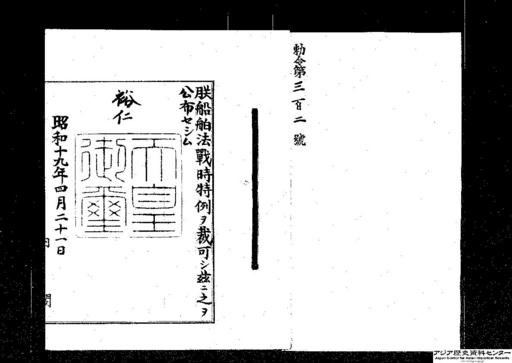 勅令第三百二號
朕船舶法戰時特例ヲ裁可シ茲ニ之ヲ
公布セシム
裕仁
天皇
御璽
昭和十九年四月二十一日
アジア歴史資料センター
Japan Center for Asian Historical Records